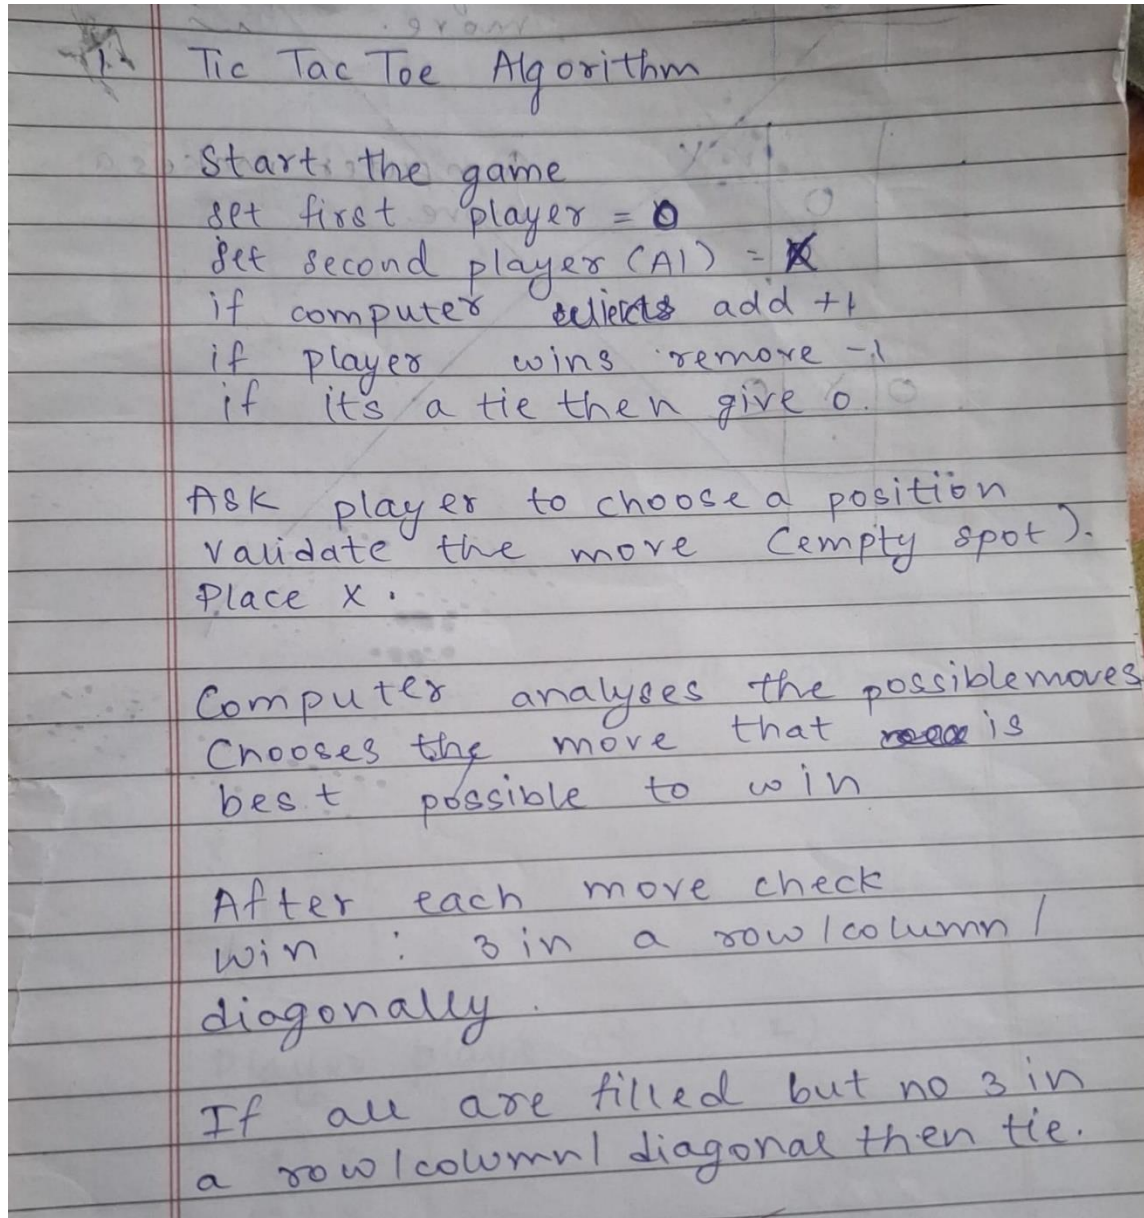 1.
Tic Tac Toe Algorithm
Start the game
set first player = O
set second player (AI) = X
if computer add +1
if player wins remove -1
if its a tie then give 0.
Ask player to choose a position
validate the move (empty spot).
Place X.
Computer analyses the possible moves
Chooses the move that is
best possible to win
After each move check
win : 3 in a row / column /
diagonally.
If all are filled but no 3 in
a row / column / diagonal then tie.